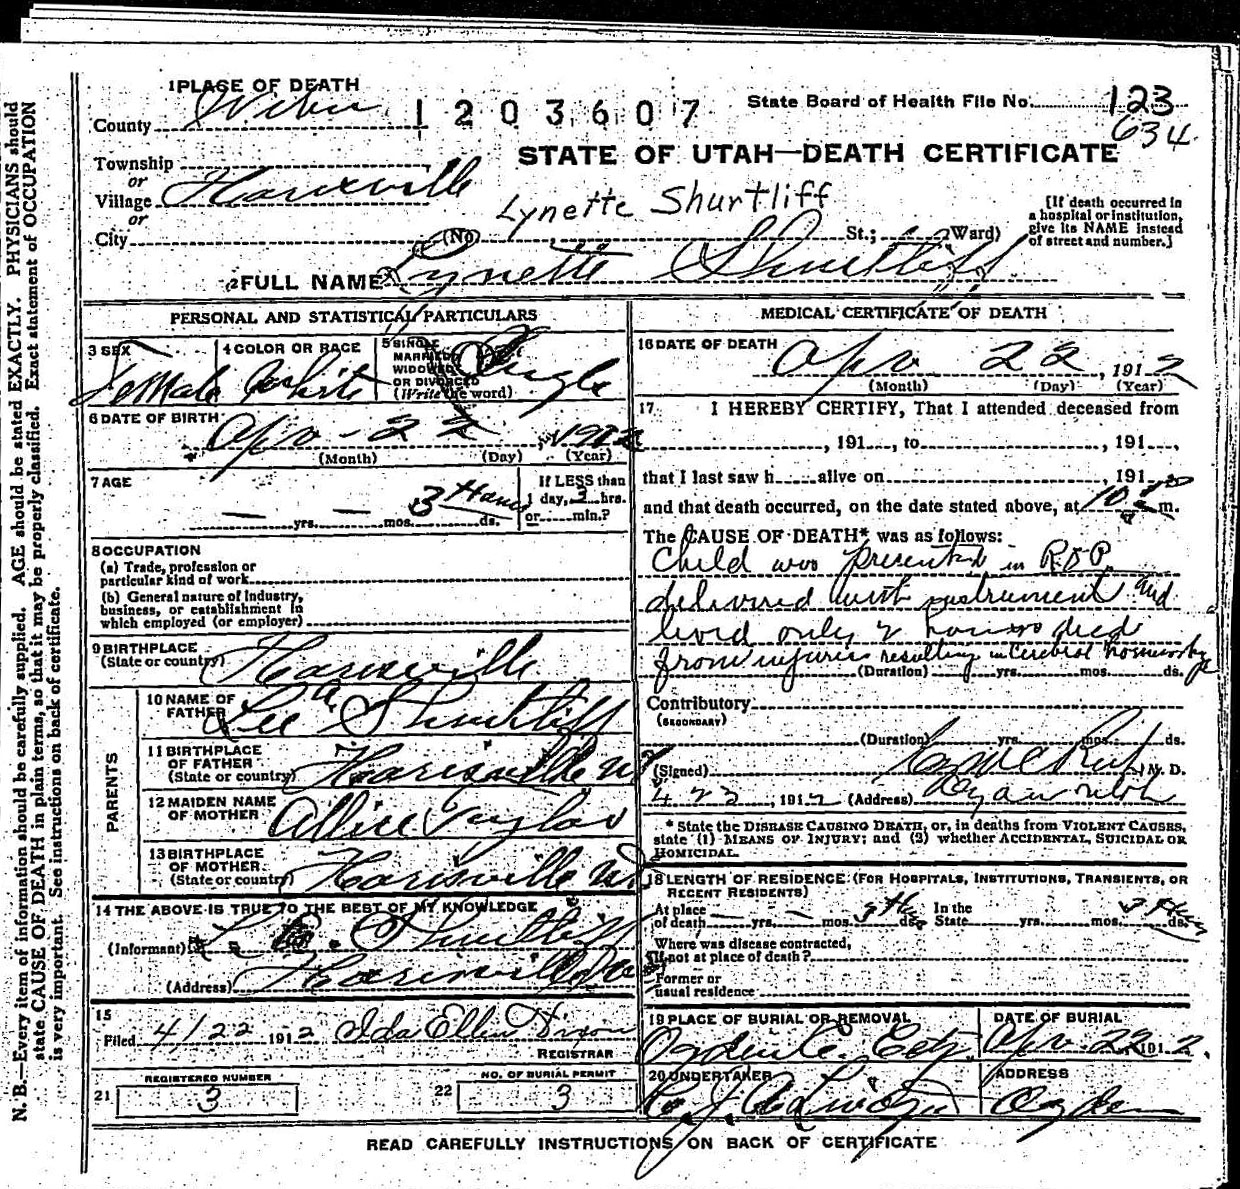 N. B.—Every item of information should be carefully supplied. AGE should be stated EXACTLY. PHYSICIANS should
state CAUSE OF DEATH in plain terms, so that it may be properly classified. Exact statement of OCCUPATION
is very important. See instructions on back of certificate.
1 PLACE OF DEATH
County Weber
1203607
State Board of Health File No. 123
634
STATE OF UTAH—DEATH CERTIFICATE
Township
or
Village Harisville
or
City (No. St.; Ward)
Lynette Shurtliff
[If death occurred in
a hospital or institution,
give its NAME instead
of street and number.]
2 FULL NAME Lynette Shurtliff
PERSONAL AND STATISTICAL PARTICULARS
3 SEX Female
4 COLOR OR RACE White
5 SINGLE
MARRIED
WIDOWED
OR DIVORCED
(Write the word) Single
6 DATE OF BIRTH Apr - 22, 1912
(Month) (Day) (Year)
7 AGE
— yrs. — mos. 3 Hours ds.
If LESS than
1 day, 3 hrs.
or min.?
8 OCCUPATION
(a) Trade, profession or
particular kind of work
(b) General nature of industry,
business, or establishment in
which employed (or employer)
9 BIRTHPLACE
(State or country) Harisville
PARENTS
10 NAME OF
FATHER Lee Shurtliff
11 BIRTHPLACE
OF FATHER
(State or country) Harisville
12 MAIDEN NAME
OF MOTHER Allice Taylor
13 BIRTHPLACE
OF MOTHER
(State or country) Harisville
14 THE ABOVE IS TRUE TO THE BEST OF MY KNOWLEDGE
(Informant) Shurtliff
(Address) Harisville
15
Filed 4/22 1912 Ida Ellen Dixon
REGISTRAR
REGISTERED NUMBER
21 3
NO. OF BURIAL PERMIT
22 3
MEDICAL CERTIFICATE OF DEATH
16 DATE OF DEATH
Apr 22, 1912
(Month) (Day) (Year)
17 I HEREBY CERTIFY, That I attended deceased from
, 191 , to , 191
that I last saw h alive on , 191
and that death occurred, on the date stated above, at 10 m.
The CAUSE OF DEATH* was as follows:
Child was presented in R.O.P.
delivered with instrument and
lived only 2 hours died
from injuries resulting in Cerebral hemorrhage
(Duration) yrs. mos. ds.
Contributory
(SECONDARY)
(Duration) yrs. mos. ds.
(Signed) M. D.
4 22, 1912 (Address) Ogden Utah
* State the DISEASE CAUSING DEATH, or, in deaths from VIOLENT CAUSES,
state (1) MEANS OF INJURY; and (2) whether ACCIDENTAL, SUICIDAL OR
HOMICIDAL.
18 LENGTH OF RESIDENCE (FOR HOSPITALS, INSTITUTIONS, TRANSIENTS, OR
RECENT RESIDENTS)
At place
of death — yrs. — mos. 3 Hrs ds.
In the
State yrs. mos. 3 Hrs ds.
Where was disease contracted,
If not at place of death?
Former or
usual residence
19 PLACE OF BURIAL OR REMOVAL
Ogden
DATE OF BURIAL
Apr. 22, 1912.
20 UNDERTAKER
ADDRESS
Ogden
READ CAREFULLY INSTRUCTIONS ON BACK OF CERTIFICATE